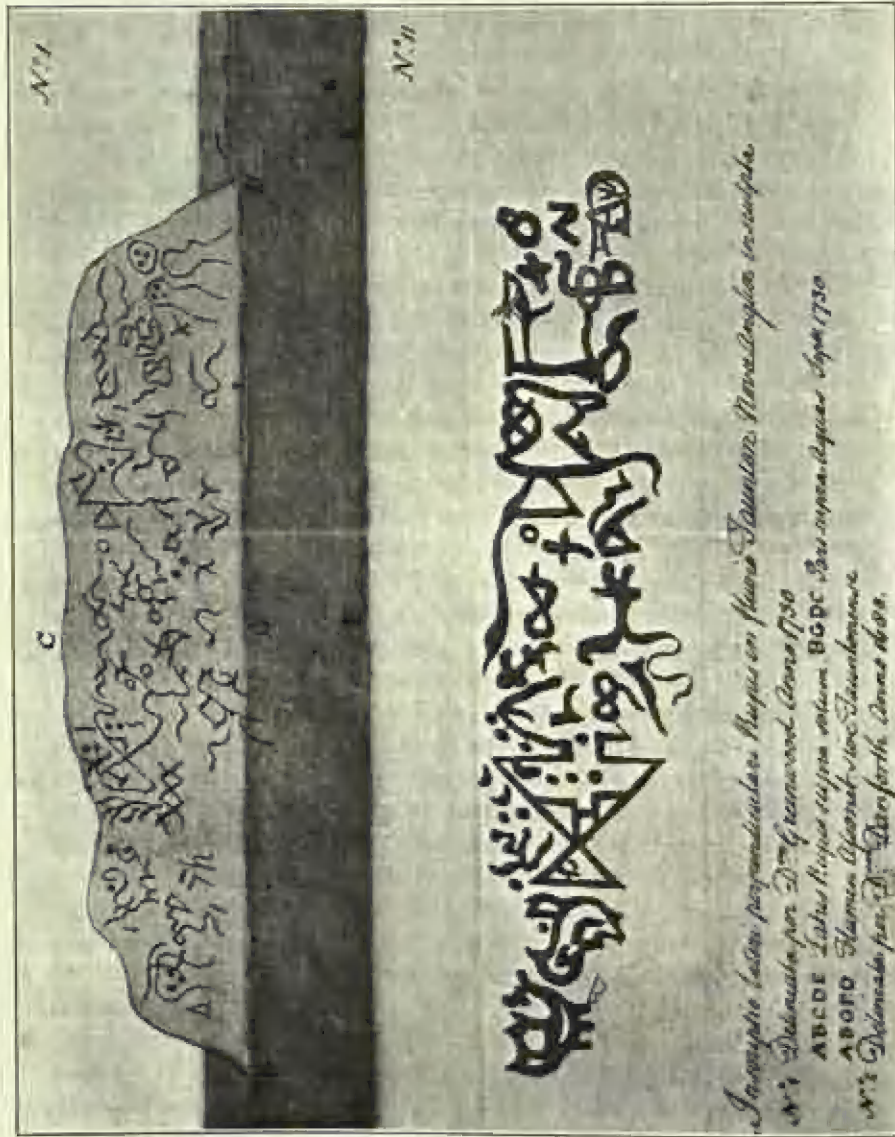 No. I
C
No. II
Inscriptio lateri perpendiculari Rupis in fluvio Taunton Novae Angliae insculpta
No. 1 Delineata per Dm. Greenwood Anno 1730
ABCDE Latus Rupis supra BGDC supra Aquas Sept. 1730
Flumen
No. 2 Delineata per Dm. Danforth Anno 1680.